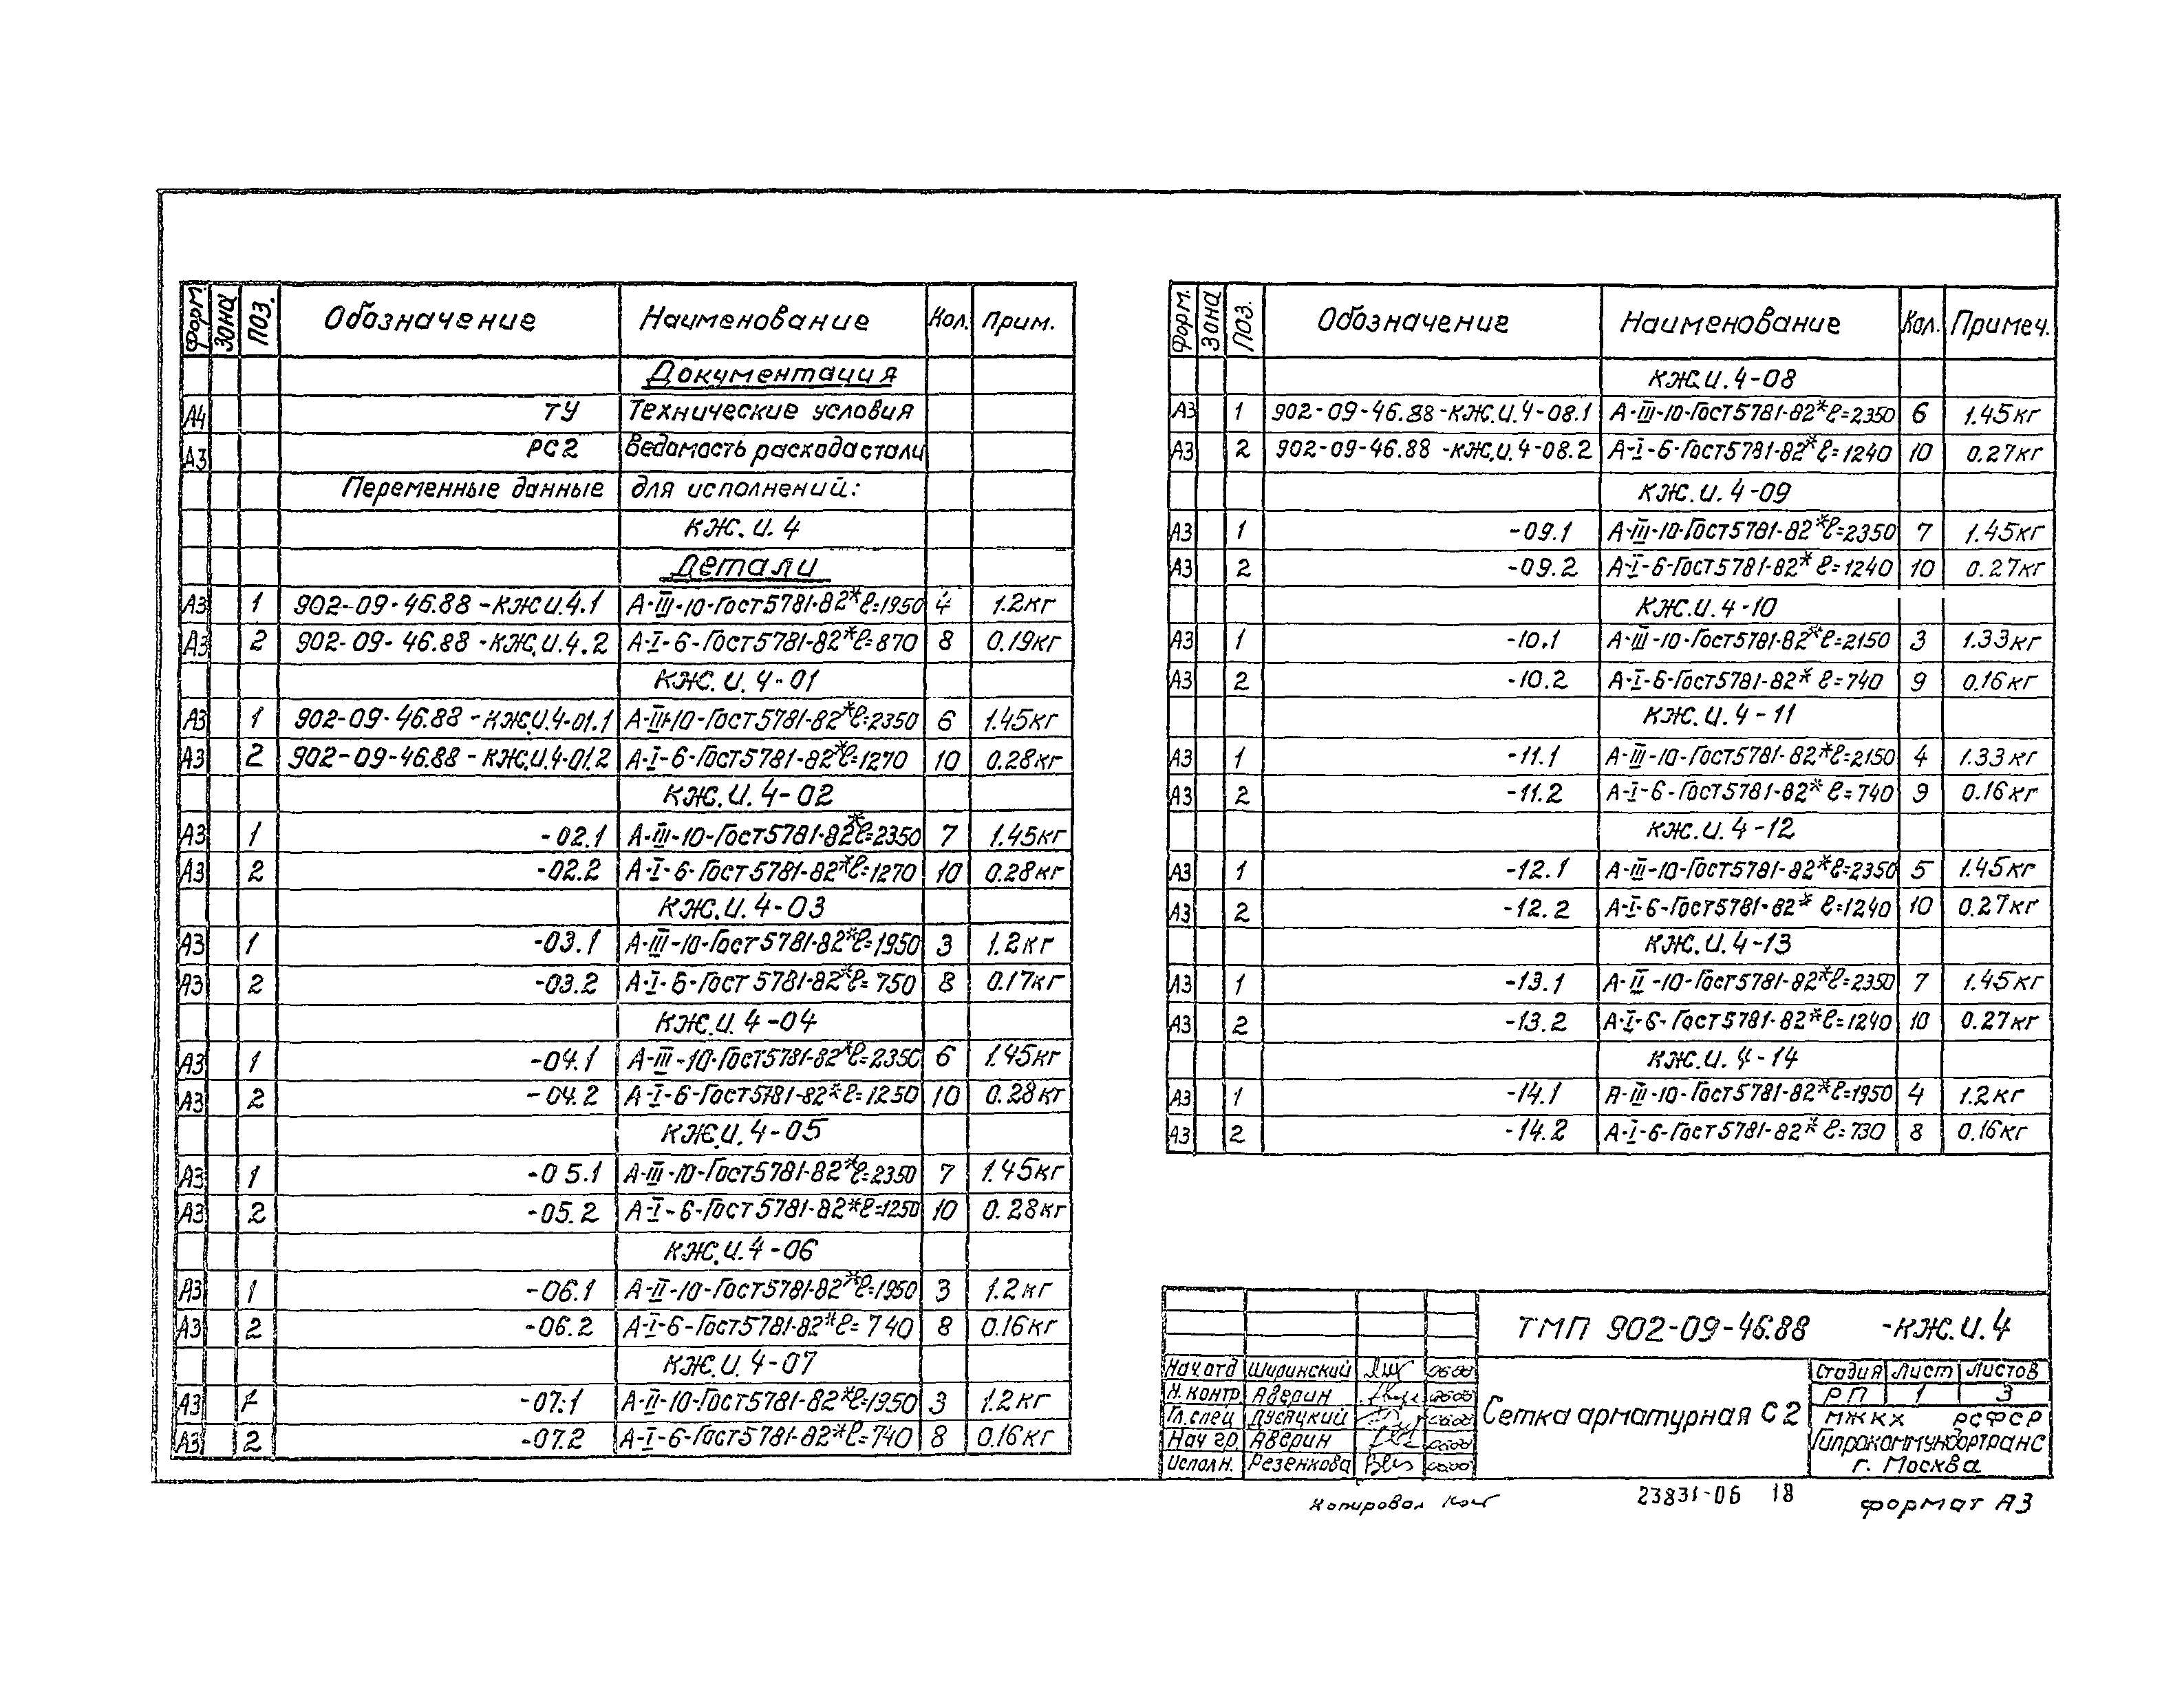 Форм. Зона Поз. Обозначение Наименование Кол. Прим.
Документация
А4 ТУ Технические условия
А3 РС2 Ведомость расхода стали
Переменные данные для исполнений:
КЖ.И.4
Детали
А3 1 902-09-46.88-КЖ.И.4.1 А-III-10-Гост5781-82* ℓ=1950 4 1.2кг
А3 2 902-09-46.88-КЖ.И.4.2 А-I-6-Гост5781-82* ℓ=870 8 0.19кг
КЖ.И.4-01
А3 1 902-09-46.88-КЖ.И.4-01.1 А-III-10-Гост5781-82* ℓ=2350 6 1.45кг
А3 2 902-09-46.88-КЖ.И.4-01.2 А-I-6-Гост5781-82* ℓ=1270 10 0.28кг
КЖ.И.4-02
А3 1 -02.1 А-III-10-Гост5781-82* ℓ=2350 7 1.45кг
А3 2 -02.2 А-I-6-Гост5781-82* ℓ=1270 10 0.28кг
КЖ.И.4-03
А3 1 -03.1 А-III-10-Гост5781-82* ℓ=1950 3 1.2кг
А3 2 -03.2 А-I-6-Гост5781-82* ℓ=750 8 0.17кг
КЖ.И.4-04
А3 1 -04.1 А-III-10-Гост5781-82* ℓ=2350 6 1.45кг
А3 2 -04.2 А-I-6-Гост5781-82* ℓ=1250 10 0.28кг
КЖ.И.4-05
А3 1 -05.1 А-III-10-Гост5781-82* ℓ=2350 7 1.45кг
А3 2 -05.2 А-I-6-Гост5781-82* ℓ=1250 10 0.28кг
КЖ.И.4-06
А3 1 -06.1 А-II-10-Гост5781-82* ℓ=1950 3 1.2кг
А3 2 -06.2 А-I-6-Гост5781-82* ℓ=740 8 0.16кг
КЖ.И.4-07
А3 1 -07.1 А-II-10-Гост5781-82* ℓ=1950 3 1.2кг
А3 2 -07.2 А-I-6-Гост5781-82* ℓ=740 8 0.16кг
Форм. Зона Поз. Обозначение Наименование Кол. Примеч.
КЖ.И.4-08
А3 1 902-09-46.88-КЖ.И.4-08.1 А-III-10-Гост5781-82* ℓ=2350 6 1.45кг
А3 2 902-09-46.88-КЖ.И.4-08.2 А-I-6-Гост5781-82* ℓ=1240 10 0.27кг
КЖ.И.4-09
А3 1 -09.1 А-III-10-Гост5781-82* ℓ=2350 7 1.45кг
А3 2 -09.2 А-I-6-Гост5781-82* ℓ=1240 10 0.27кг
КЖ.И.4-10
А3 1 -10.1 А-III-10-Гост5781-82* ℓ=2150 3 1.33кг
А3 2 -10.2 А-I-6-Гост5781-82* ℓ=740 9 0.16кг
КЖ.И.4-11
А3 1 -11.1 А-III-10-Гост5781-82* ℓ=2150 4 1.33кг
А3 2 -11.2 А-I-6-Гост5781-82* ℓ=740 9 0.16кг
КЖ.И.4-12
А3 1 -12.1 А-III-10-Гост5781-82* ℓ=2350 5 1.45кг
А3 2 -12.2 А-I-6-Гост5781-82* ℓ=1240 10 0.27кг
КЖ.И.4-13
А3 1 -13.1 А-II-10-Гост5781-82* ℓ=2350 7 1.45кг
А3 2 -13.2 А-I-6-Гост5781-82* ℓ=1240 10 0.27кг
КЖ.И.4-14
А3 1 -14.1 А-III-10-Гост5781-82* ℓ=1950 4 1.2кг
А3 2 -14.2 А-I-6-Гост5781-82* ℓ=730 8 0.16кг
ТМП 902-09-46.88 -КЖ.И.4
Нач отд Ширинский
Н. контр Аверин
Гл. спец Дусяцкий
Нач гр Аверин
Исполн. Резенкова
Сетка арматурная С2
Стадия Лист Листов
РП 1 3
МЖКХ РСФСР
Гипрокоммундортранс
г. Москва
Копировал
23831-06 18
формат А3